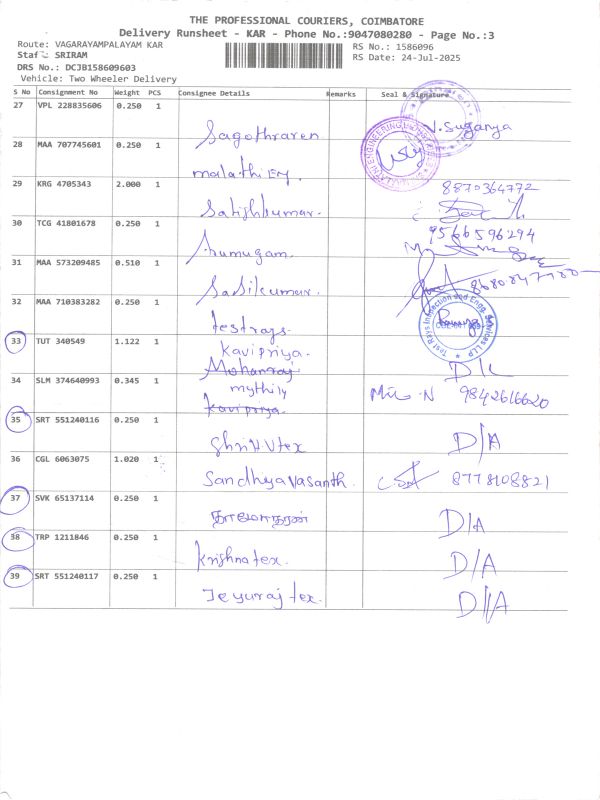 THE PROFESSIONAL COURIERS, COIMBATORE
Delivery Runsheet - KAR - Phone No.:9047080280 - Page No.:3
Route: VAGARAYAMPALAYAM KAR
RS No.: 1586096
Staf : SRIRAM
RS Date: 24-Jul-2025
DRS No.: DCJB158609603
Vehicle: Two Wheeler Delivery
S No Consignment No Weight PCS Consignee Details Remarks Seal & Signature
27 VPL 228835606 0.250 1
V.Suganya
28 MAA 707745601 0.250 1
malathi Eng.
29 KRG 4705343 2.000 1 8870364772
Satishkumar.
30 TCG 41801678 0.250 1 9566596294
Arumugam.
31 MAA 573209485 0.510 1
Sasikumar. 8680847780
32 MAA 710383282 0.250 1
testrays Test Rays Inspection and Engg. Services LLP
33 TUT 340549 1.122 1 Kavipriya.
Mohanraj D/L
34 SLM 374640993 0.345 1 mythily 9842616620
Kavipriya
35 SRT 551240116 0.250 1
Shri V tex D/A
36 CGL 6063075 1.020 1
Sandhya Vasanth. 8778108821
37 SVK 65137114 0.250 1
தாமோதரன் D/A
38 TRP 1211846 0.250 1
Krishna tex. D/A
39 SRT 551240117 0.250 1
Jeyuraj tex. D/A